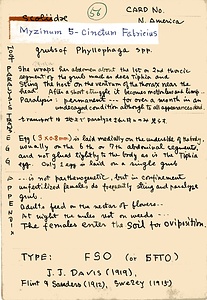 Scoliidae
56
CARD No.
N. America
Myzinum 5-Cinctum Fabricius
grubs of Phyllophaga spp.
She wraps her abdomen about the 1st or 2nd thoracic
segment of the grub used as does Tiphia and
Sting the host on the ventrum of the thorax near the
after a short struggle it becomes motionless and limp.
Paralysis : permanent -- to over a month in an
undamaged condition although to all appearances dead.
Egg is laid medially on the underside of the body,
usually on the 6th or 7th abdominal segments,
and not glued tightly to the body as in the Tiphia
egg. Only 1 egg is laid on a single grub
... is not parthenogenetic, but in confinement
unfertilized females do frequently sting and paralyze
grub.
Adults feed on the nectar of flowers..
At night the males rest on weeds ...
The females enter the soil to oviposition.
TYPE: FSO (or SFTO)
J. J. DAVIS (1919),
Flint & Sanders (1912), Swezey (1915)